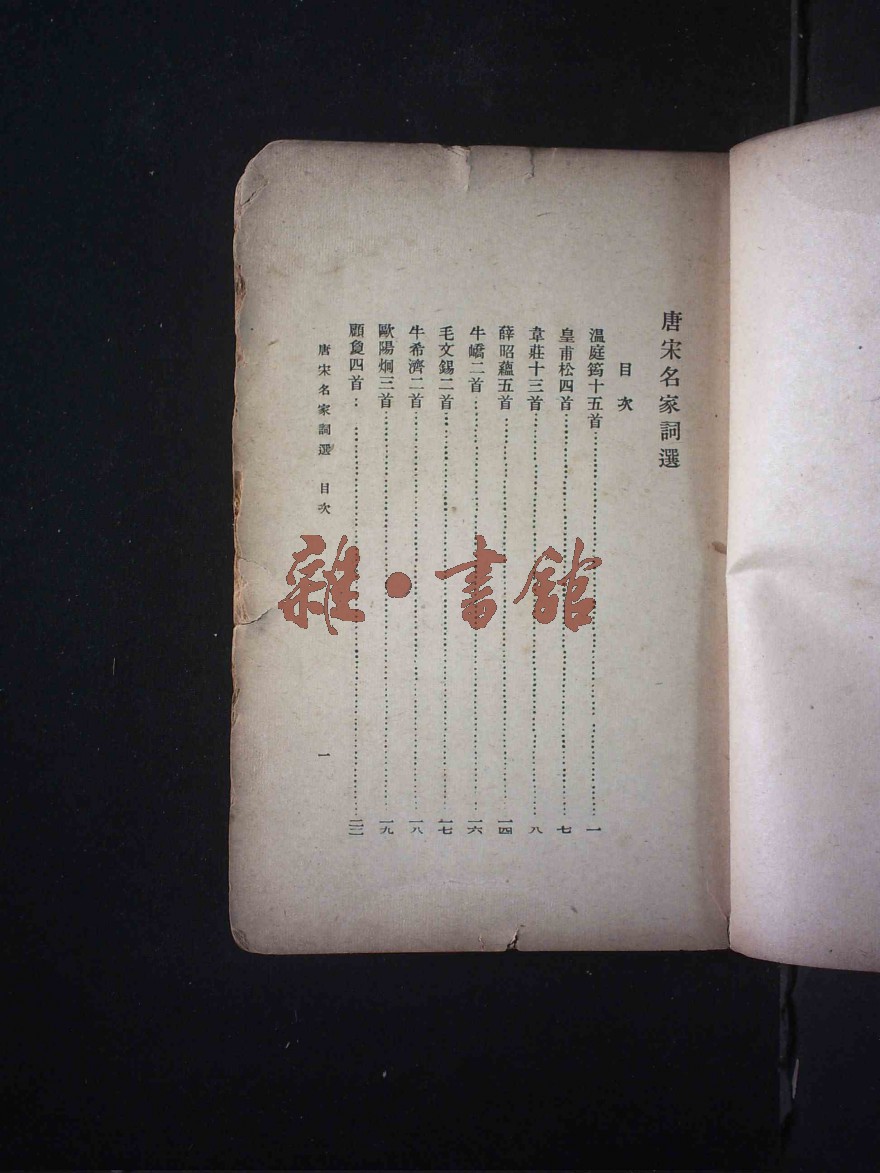 唐宋名家詞選
目次
溫庭筠十五首……一
皇甫松四首……七
韋莊十三首……八
薛昭蘊五首……一四
牛嶠二首……一六
毛文錫二首……一七
牛希濟二首……一八
歐陽炯三首……一九
顧敻四首……
唐宋名家詞選 目次
一
雜·書館